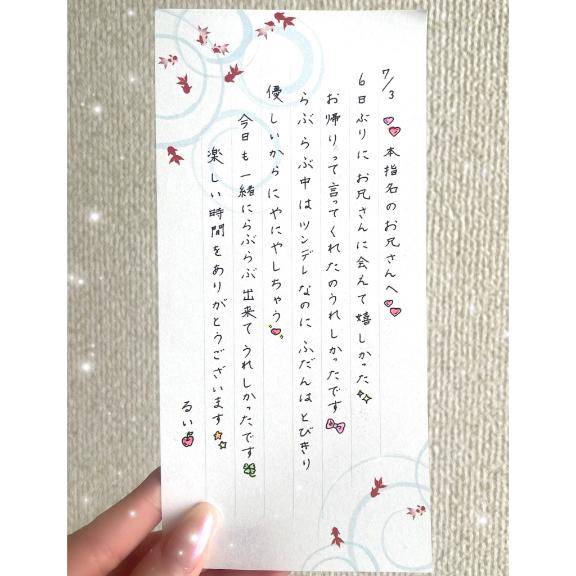 7/3 本指名のお兄さんへ
6日ぶりにお兄さんに会えて嬉しかった
お帰りって言ってくれたのうれしかったです
らぶらぶ中はツンデレなのにふだんはとびきり
優しいからにやにやしちゃう
今日も一緒にらぶらぶ出来てうれしかったです
楽しい時間をありがとうございます
るい